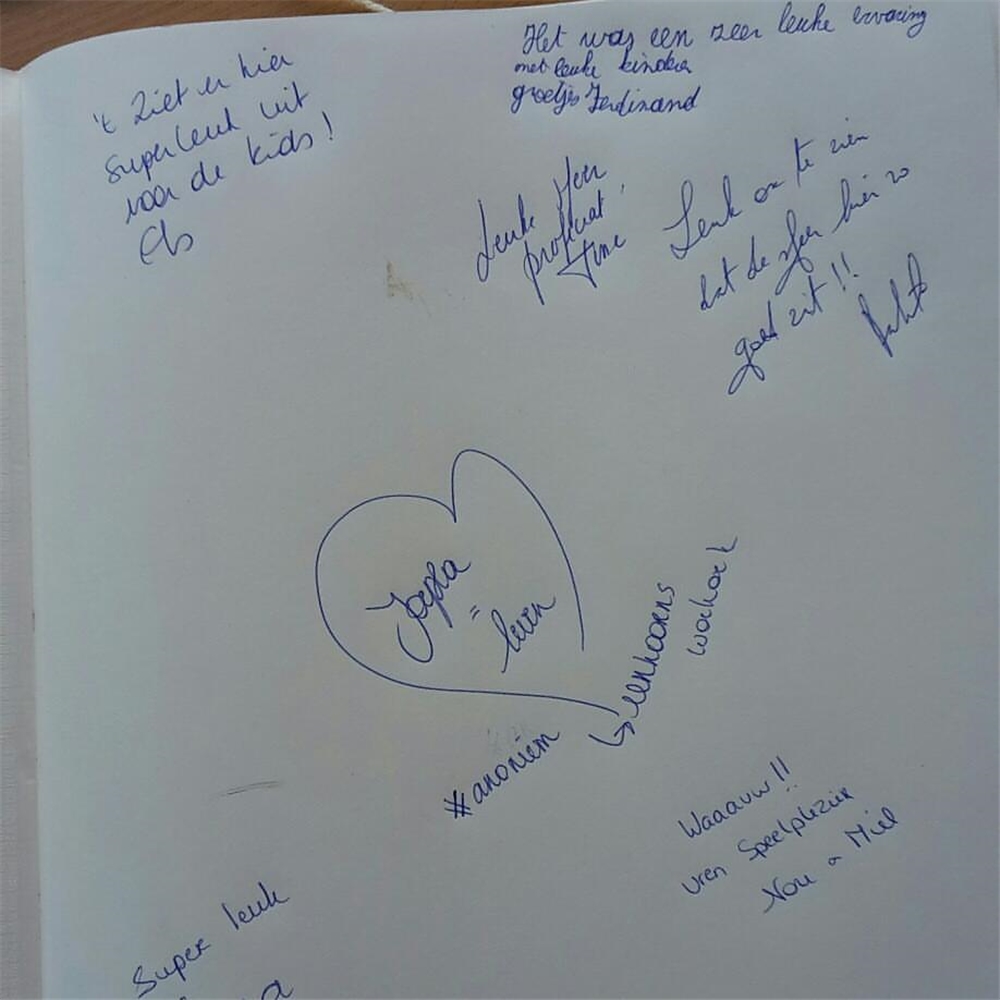 't Ziet er hier
superleuk uit
voor de kids!
Els
Het was een zeer leuke ervaring
met leuke kinders
groetjes Ferdinand
Leuke sfeer
proficiat!
Tine
Leuk om te zien
dat de sfeer hier zo
goed zit!!
Joepla
=
leven
eenhoorns
workock
#anoniem
Waaauw!!
uren speelplezier
Nou & Miel
Super leuk